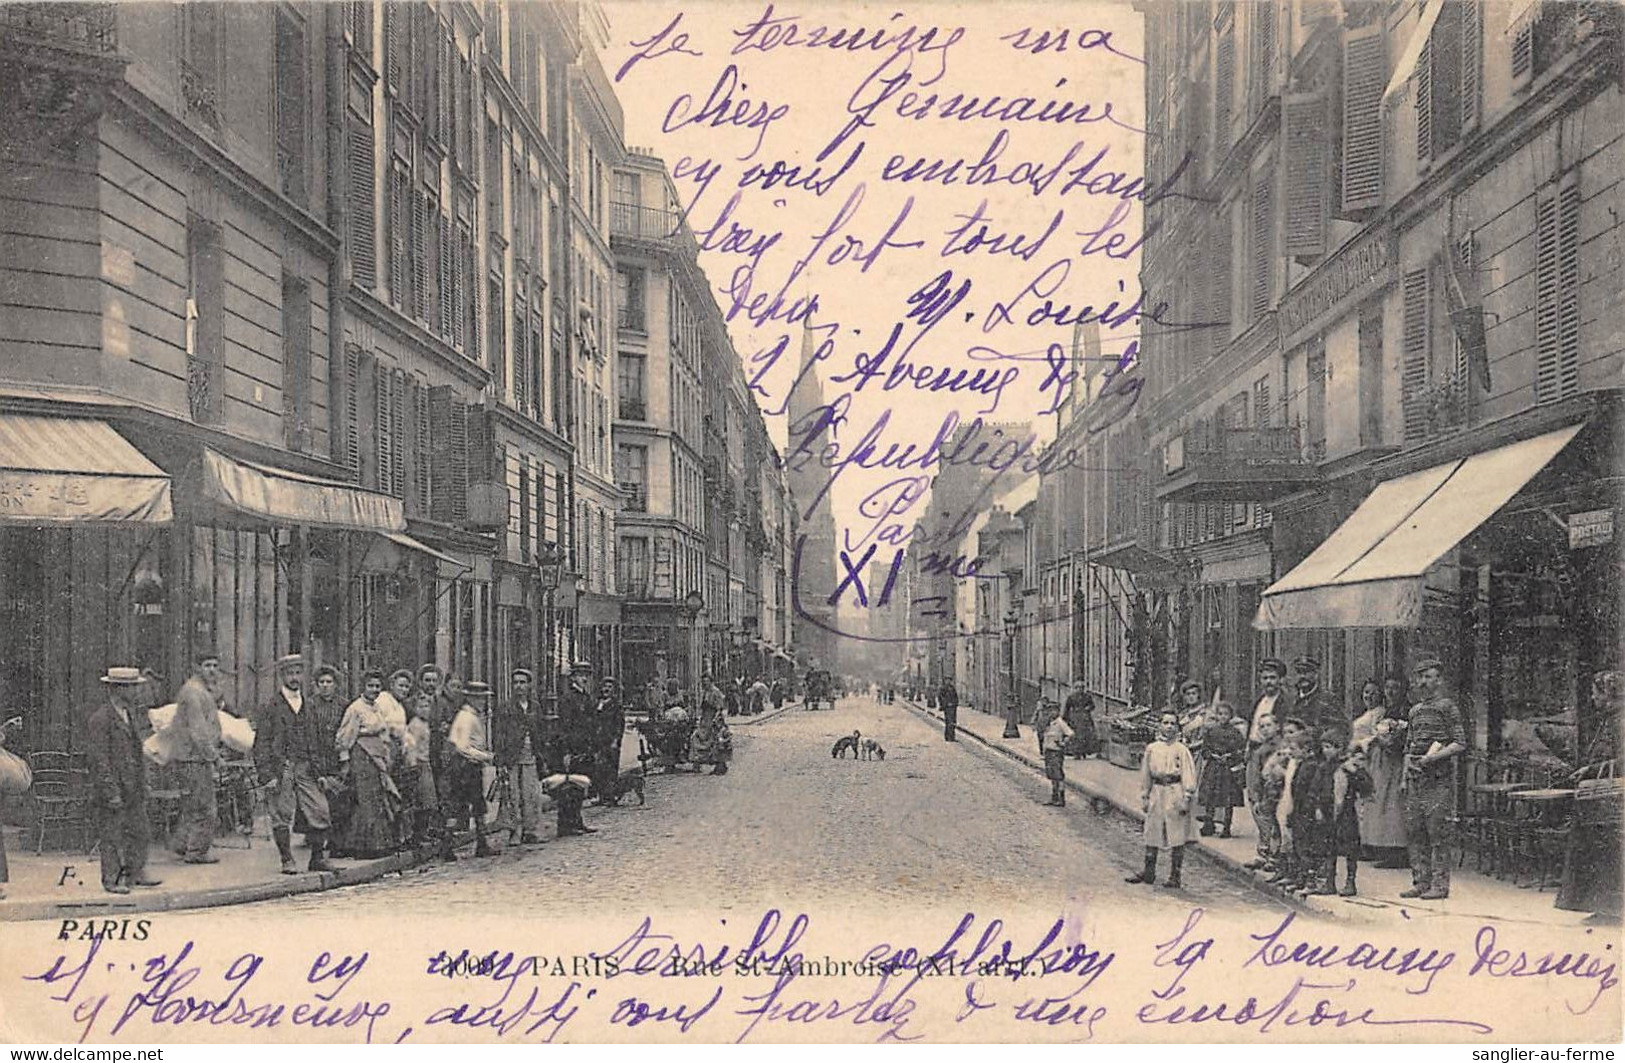 Je termine ma
chère Germaine
en vous embrassant
bien fort tous les
deux. M. Louise
25 Avenue de la
République
Paris
XIme
F. F.
PARIS
PARIS – Rue St-Ambroise (XIe arrt.)
il y a eu une terrible explosion la semaine dernière
à Mourneuve, aussi vous parlez d'une émotion
sanglier-au-ferme